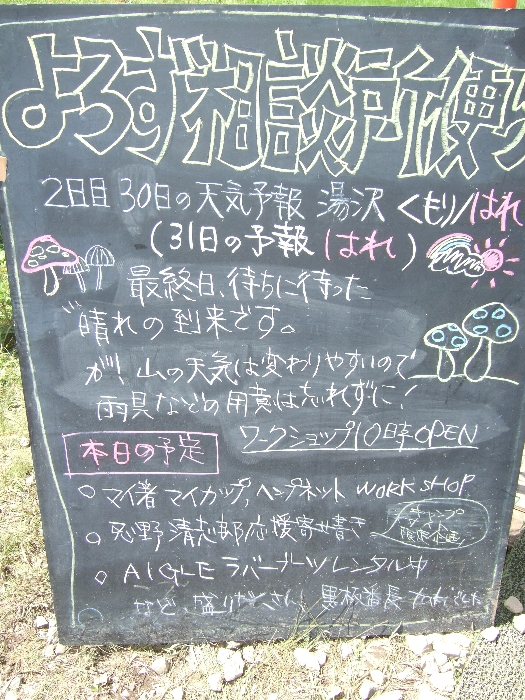 よろず相談所便り
2日目 30日の天気予報 湯沢 くもり/はれ
(31日の予報 はれ)
最終日、待ちに待った
晴れの到来です。
が! 山の天気は変わりやすいので
雨具などの用意は忘れずに!
ワークショップ10時OPEN
本日の予定
○ マイ箸 マイカップ, ヘンプネット WORK SHOP.
○ 忌野清志郎応援寄せ書き
キャンプ
限定企画
○ AIGLE ラバーブーツレンタル中
など、盛りだくさん! 黒板番長